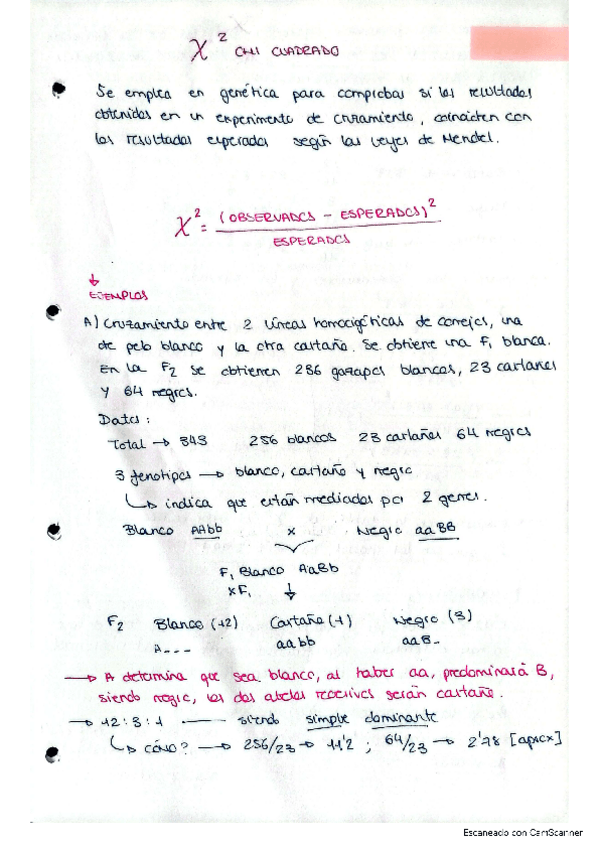 χ² CHI CUADRADO
Se emplea en genética para comprobar si los resultados
obtenidos en un experimento de cruzamiento, coinciden con
los resultados esperados según las leyes de Mendel.
χ² = (OBSERVADOS - ESPERADOS)² / ESPERADOS
↓
EJEMPLOS
A) Cruzamiento entre 2 líneas homocigóticas de conejos, una
de pelo blanco y la otra castaño. Se obtiene una F₁ blanca.
En la F₂ se obtienen 286 gazapos blancos, 23 castaños
y 64 negros.
Datos:
Total → 343 256 blancos 23 castaños 64 negros
3 fenotipos → blanco, castaño y negro
↳ indica que están mediados por 2 genes.
Blanco AAbb x Negro aaBB
F₁ Blanco AaBb
xF₁ ↓
F₂ Blanco (12) Castaño (1) Negro (3)
A--- aabb aaB-
→ A determina que sea blanco, al haber aa, predominará B,
siendo negro, los dos alelos recesivos serán castaño.
→ 12:3:1 —— siendo simple dominante
↳ cómo? → 256/23 → 11'2 ; 64/23 → 2'78 [aprox]
Escaneado con CamScanner